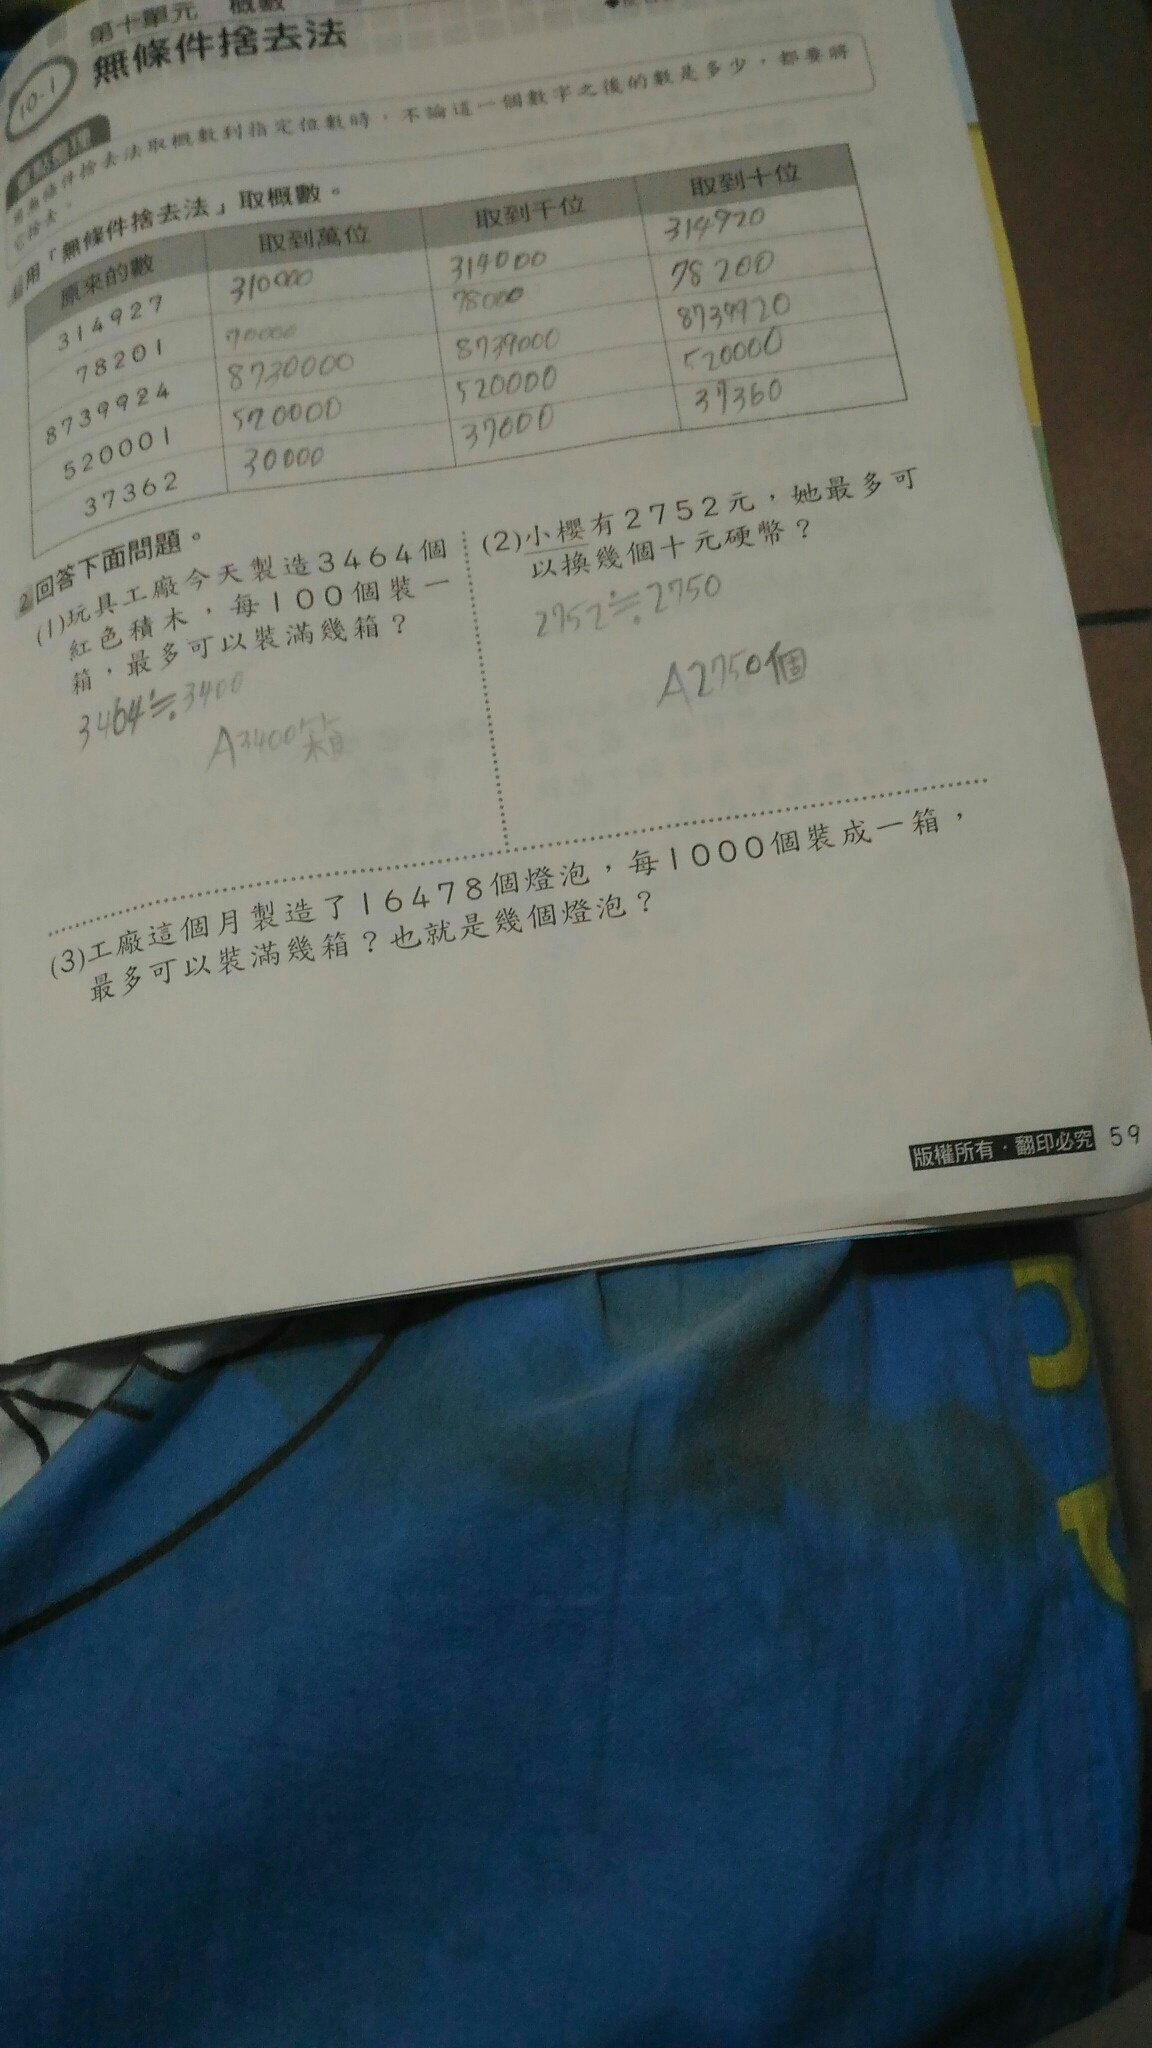 第十單元 概數
10-1
無條件捨去法
重點整理
用無條件捨去法取概數到指定位數時，不論這一個數字之後的數是多少，都要將
它捨去。
用「無條件捨去法」取概數。
原來的數 取到萬位 取到千位 取到十位
314927 310000 314000 314920
78201 70000 78000 78200
8739924 8730000 8739000 8739920
520001 520000 520000 520000
37362 30000 37000 37360
2 回答下面問題。
(1)玩具工廠今天製造3464個
紅色積木，每100個裝一
箱，最多可以裝滿幾箱？
3464≒3400
A3400箱
(2)小櫻有2752元，她最多可
以換幾個十元硬幣？
2752≒2750
A2750個
(3)工廠這個月製造了16478個燈泡，每1000個裝成一箱，
最多可以裝滿幾箱？也就是幾個燈泡？
版權所有·翻印必究 59